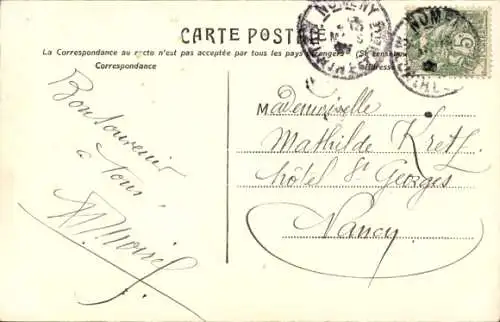 CARTE POSTALE
La Correspondance au recto n'est pas acceptée par tous les pays étrangers (Se renseigner
Correspondance
Adresse
NOMENY
5
Bon souvenir
à tous.
Mademoiselle
Mathilde Kretz
hôtel St Georges
Nancy